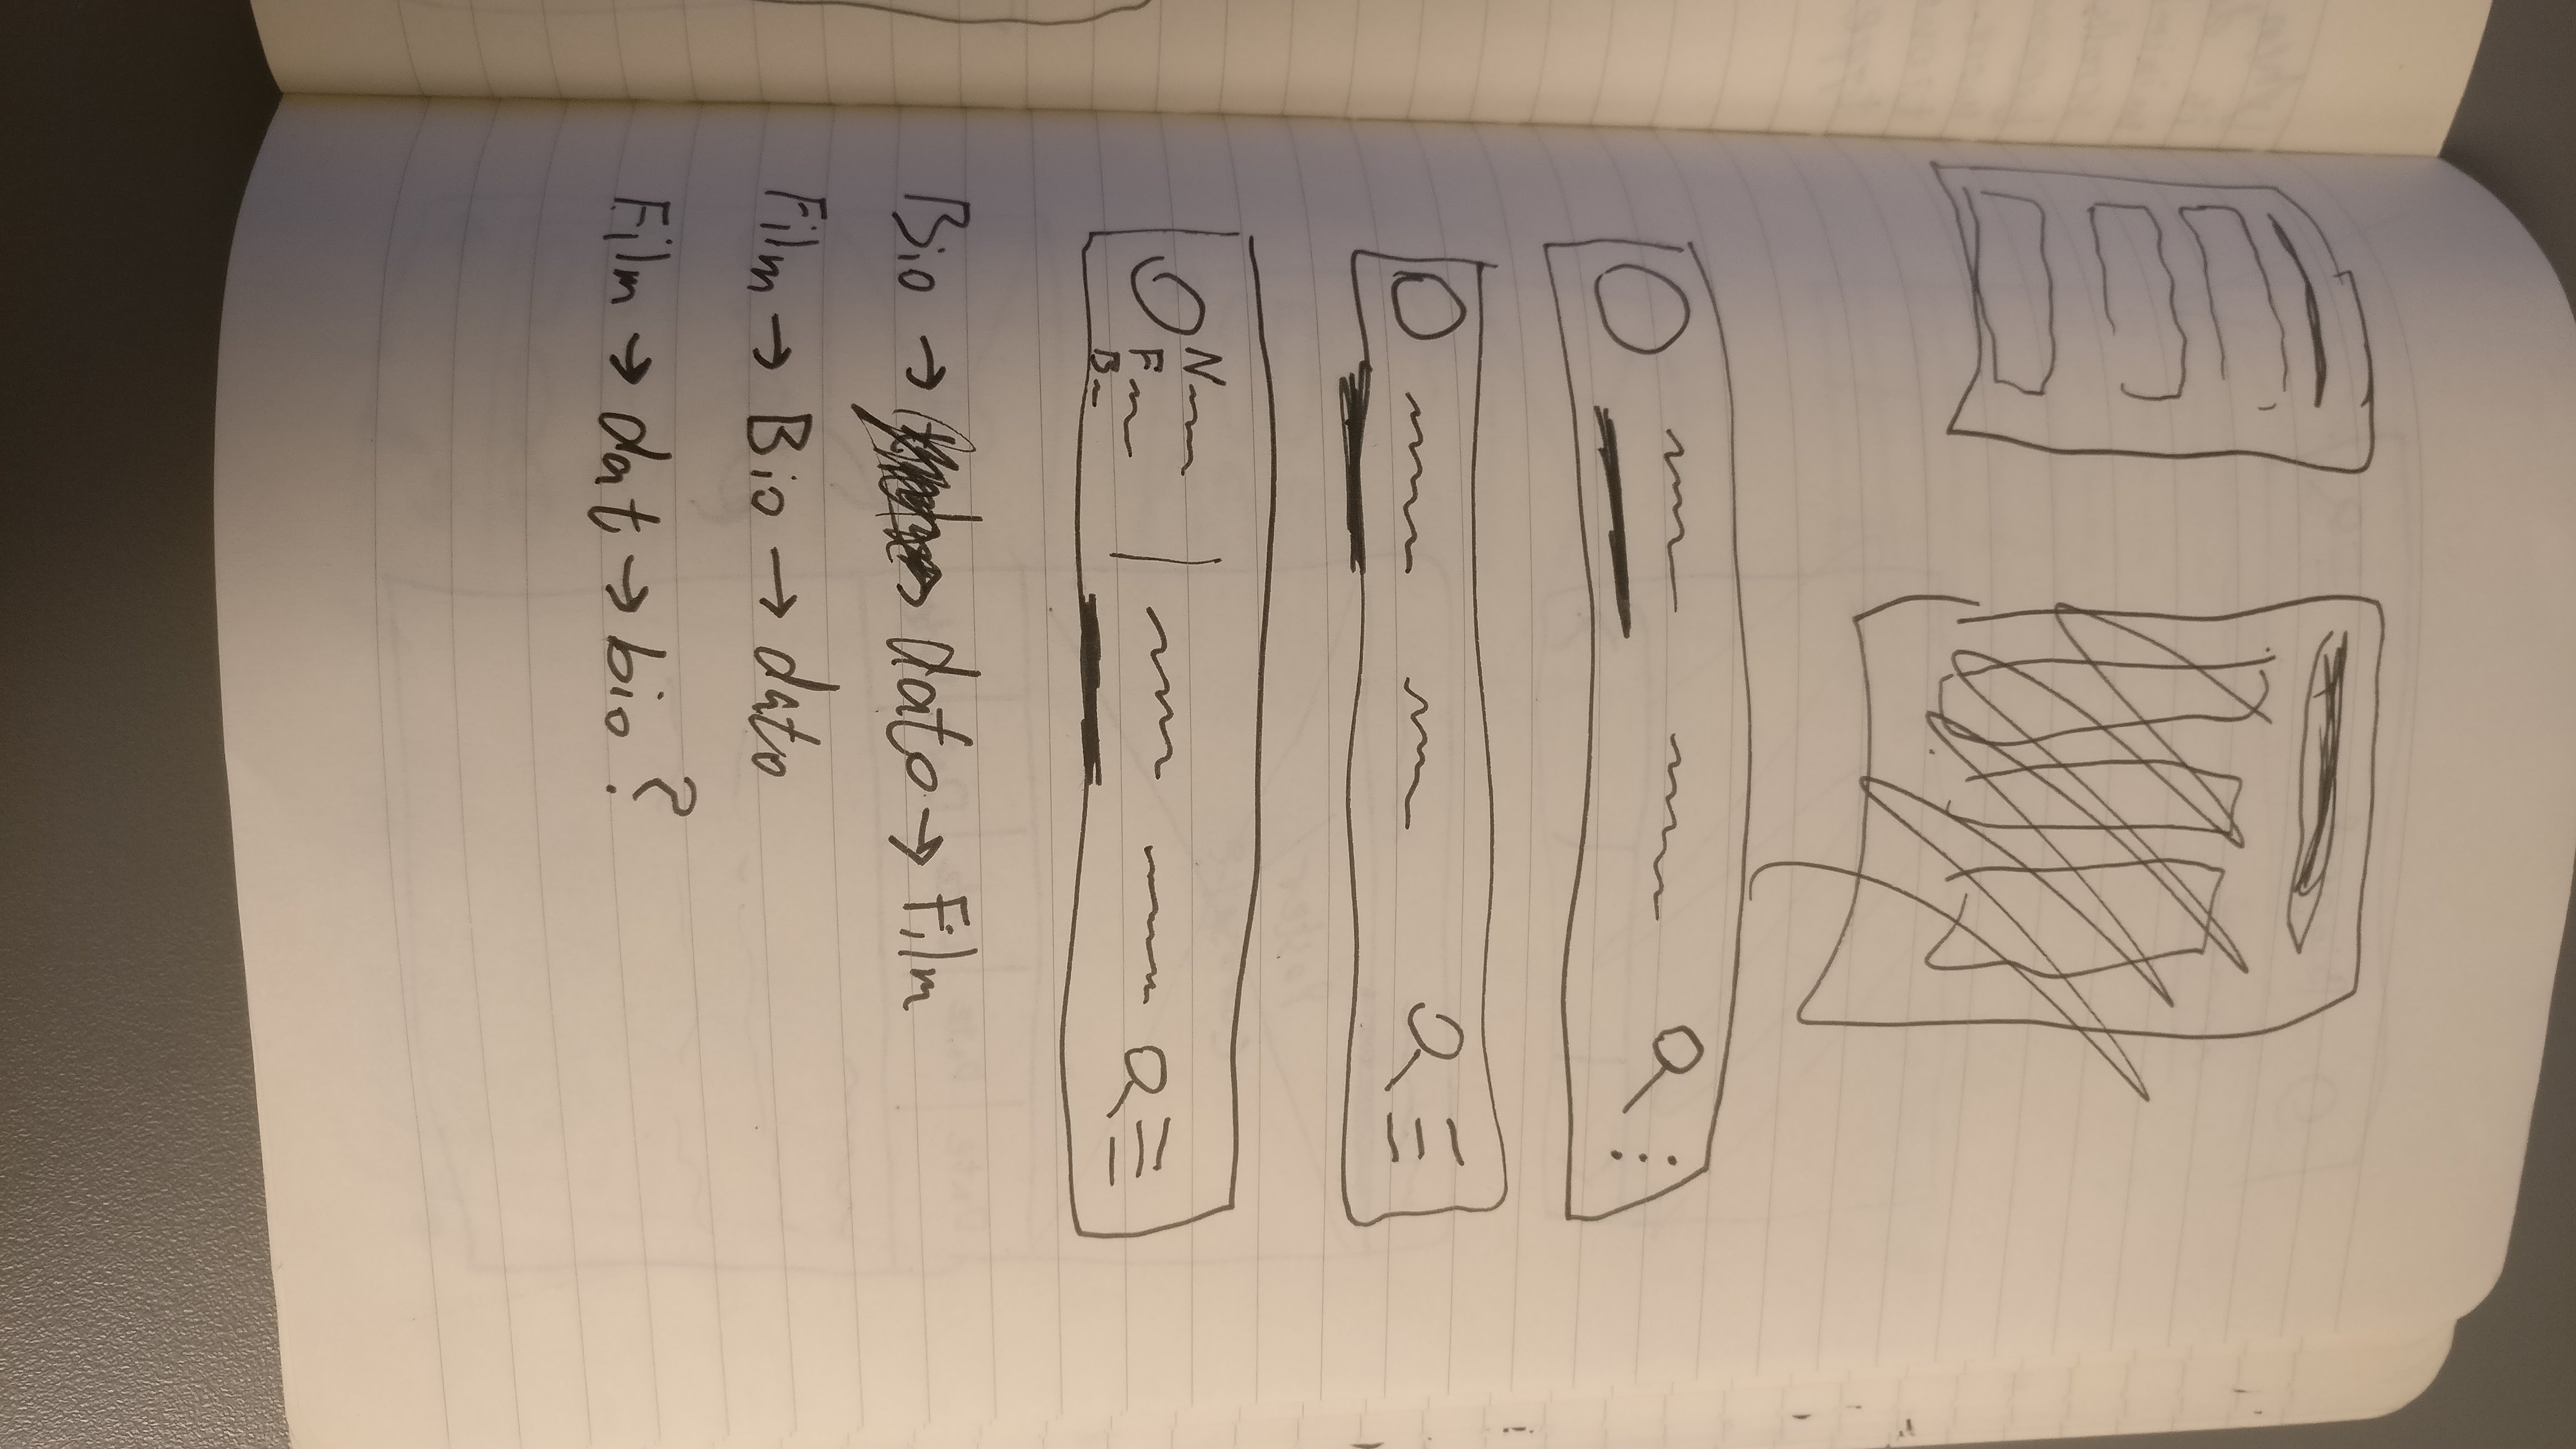 N
F
B
Bio → dato → Film
Film → Bio → dato
Film → dat → bio ?